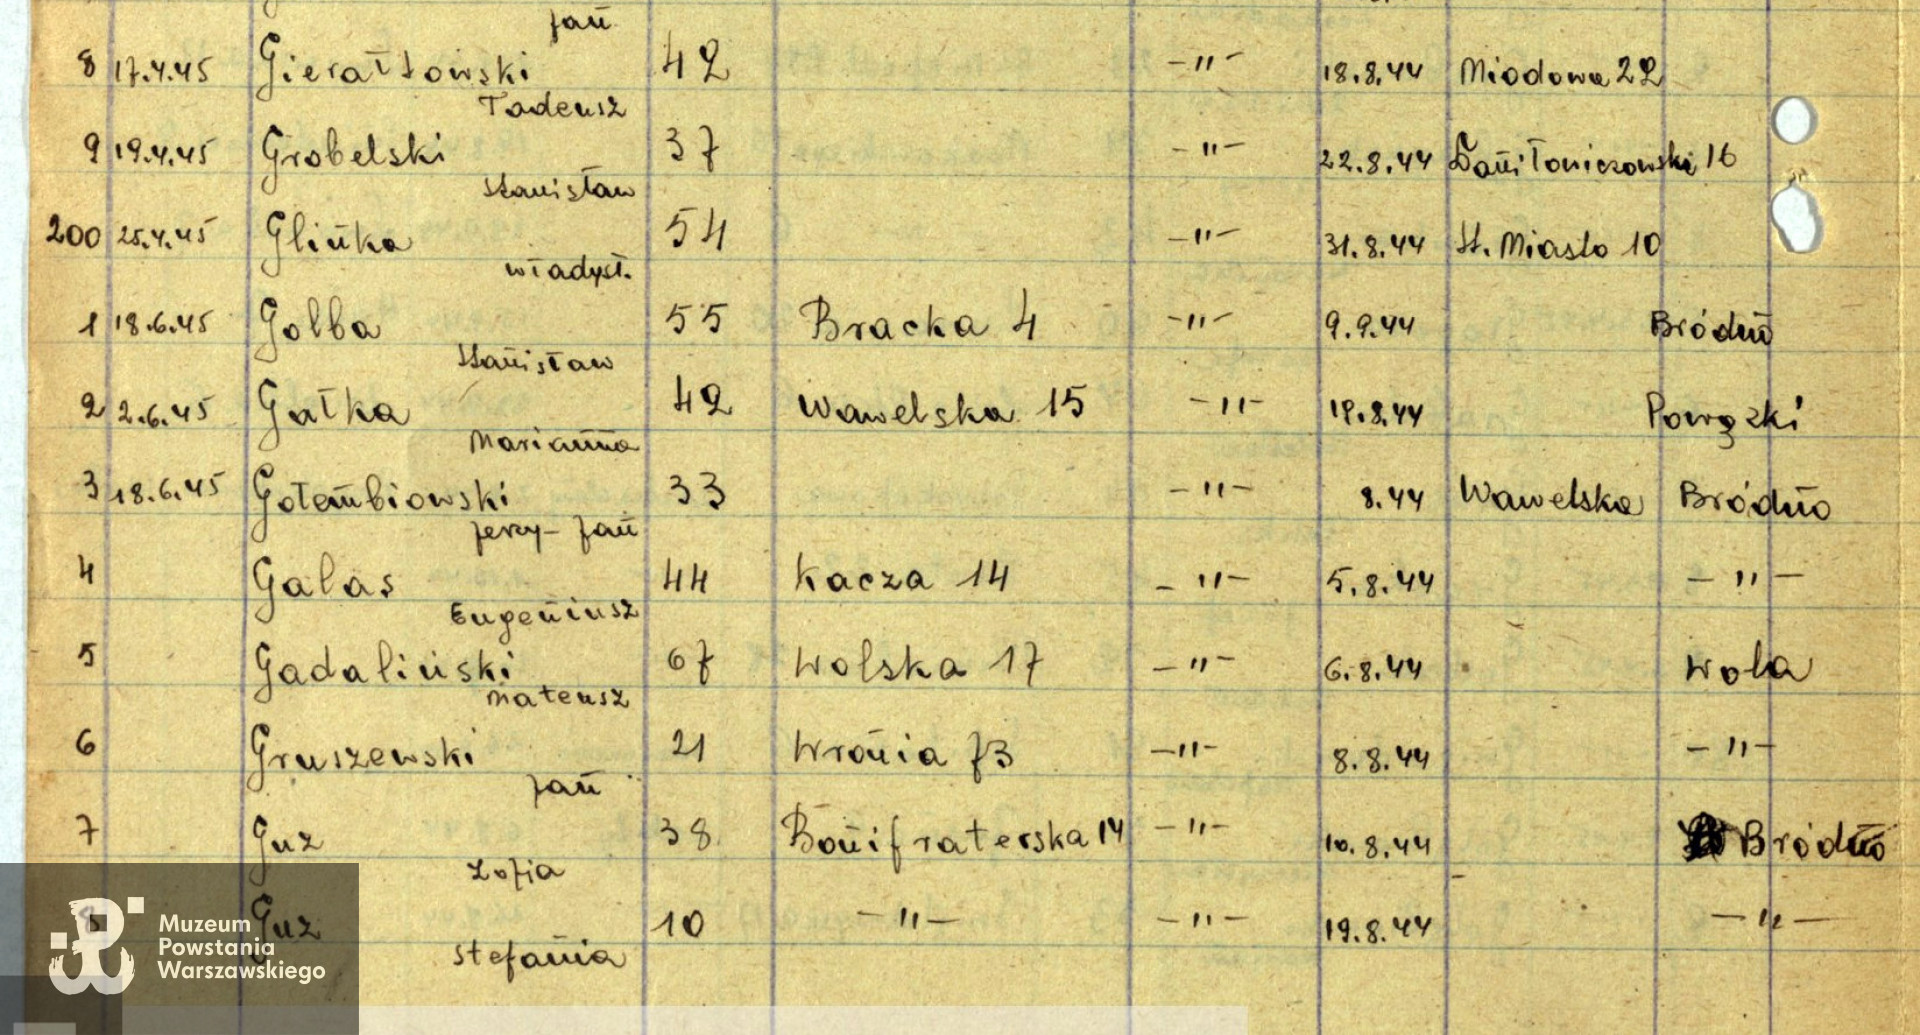 Jan
8 17.4.45 Gierałtowski 42 -"- 18.8.44 Miodowa 22
Tadeusz
9 19.4.45 Grobelski 37 -"- 22.8.44 Daniłowiczowski 16
Stanisław
200 25.4.45 Glińka 54 -"- 31.8.44 St. Miasto 10
Władysł.
1 18.6.45 Golba 55 Bracka 4 -"- 9.9.44 Bródno
Stanisław
2 2.6.45 Gałka 42 Wawelska 15 -"- 19.8.44 Powązki
Marianna
3 18.6.45 Gołembiowski 33 -"- 8.44 Wawelska Bródno
Jerzy-Jan
4 Galas 44 Kacza 14 -"- 5.8.44 -"-
Eugeniusz
5 Gadaliński 67 Wolska 17 -"- 6.8.44 Wola
Mateusz
6 Gruszewski 21 Wronia 73 -"- 8.8.44 -"-
Jan
7 Guz 38 Bonifraterska 14 -"- 10.8.44 Bródno
Zofia
8 Guz 10 -"- -"- 19.8.44 -"-
Stefania
Muzeum
Powstania
Warszawskiego